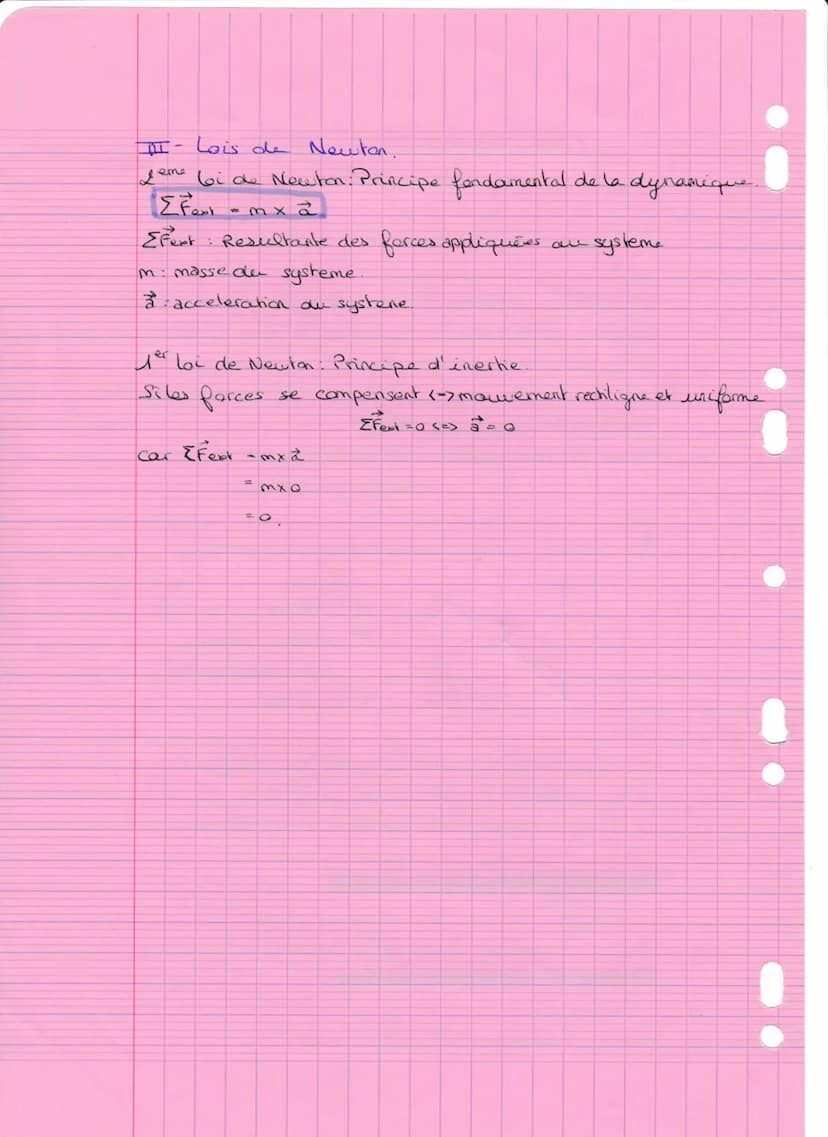 III - Lois de Newton.
2ème loi de Newton : Principe fondamental de la dynamique.
ΣF⃗ext = m x a⃗
ΣF⃗ext : Resultante des forces appliquées au systeme
m : masse du systeme.
a⃗ : acceleration du systeme.
1er loi de Newton : Principe d'inertie.
Si les forces se compensent <-> mouvement rectiligne et uniforme
ΣF⃗ext = 0 <=> a⃗ = 0
car ΣF⃗ext = m x a⃗
= m x 0
= 0.